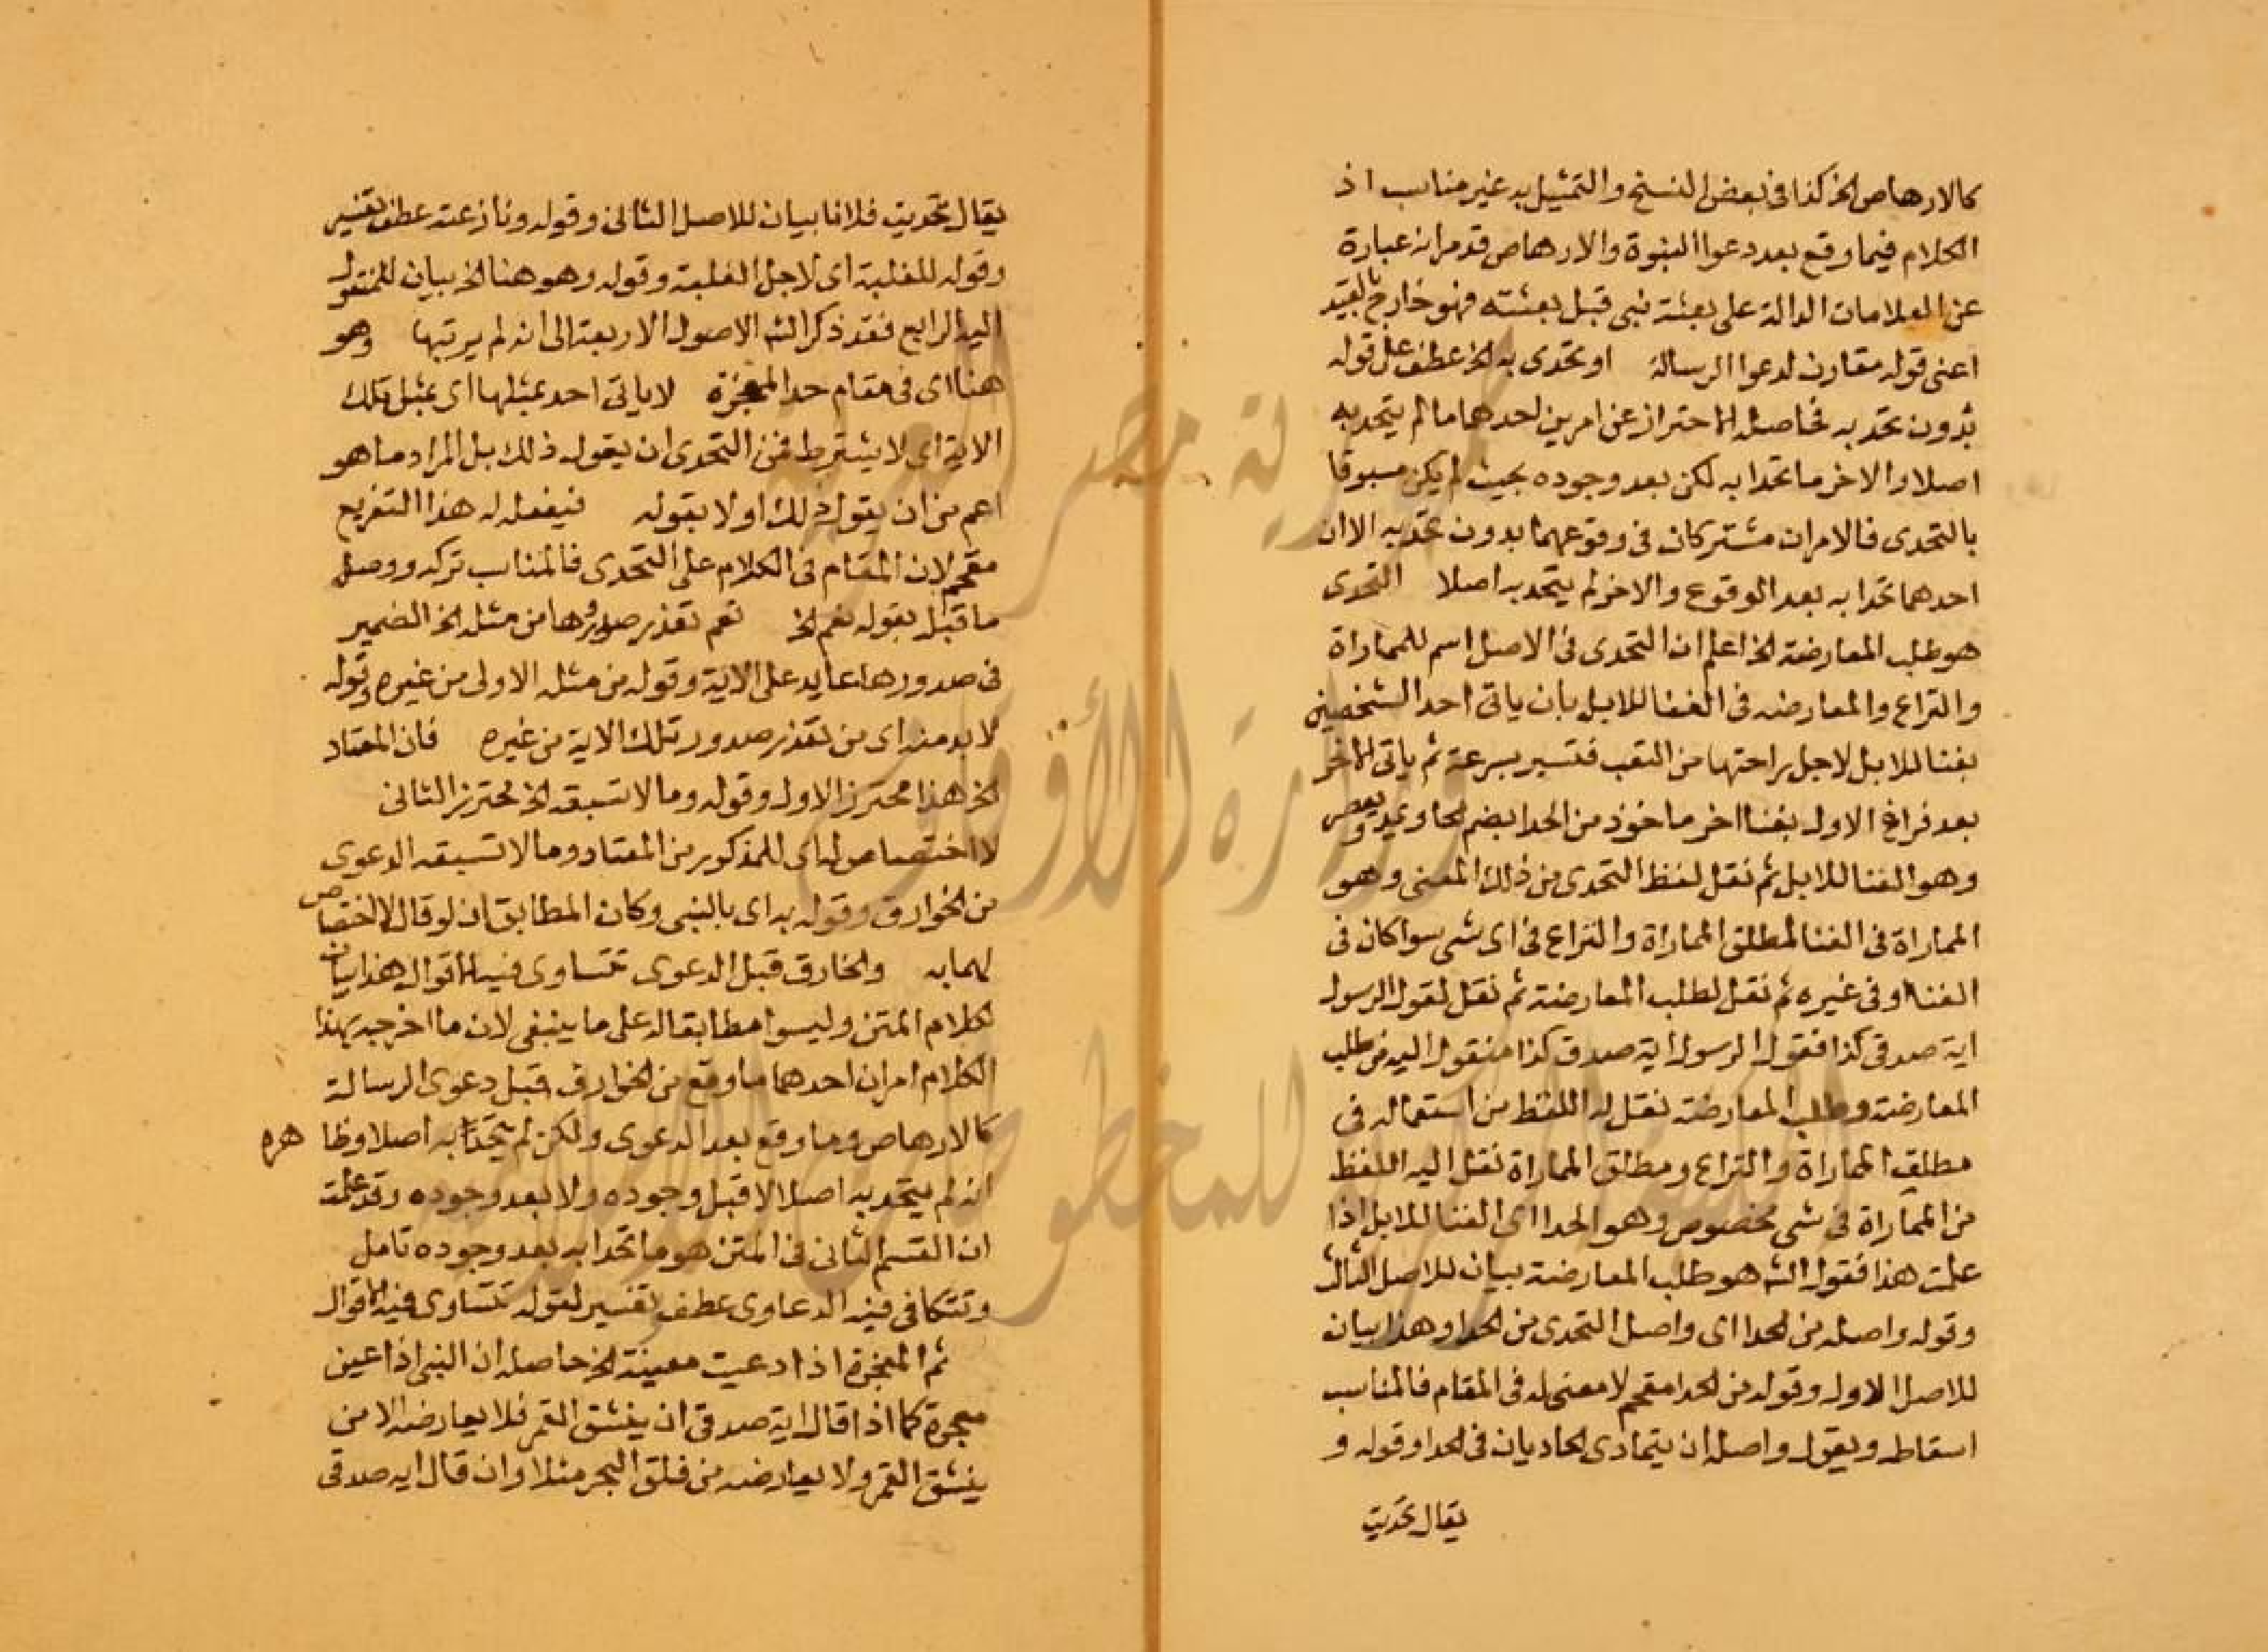 كالارهاص الخ كذا فى بعض النسخ والتمثيل به غير مناسب اذ
الكلام فيما وقع بعد دعوا النبوة والارهاص قد مر انه عبارة
عن العلامات الدالة على بعثة نبى قبل بعثته فهو خارج بالقيد
اعنى قوله مقارن لدعوا الرسالة او تحدى به الخ عطف على قوله
بدون تحد به فحاصله الاحتراز عن امرين احدهما ما لم يتحد به
اصلا والاخر ما تحدا به لكن بعد وجوده بحيث لم يكن مسبوقا
بالتحدى فالامران مشتركان فى وقوعهما بدون تحد به الا ان
احدهما تحدا به بعد الوقوع والاخر لم يتحد به اصلا التحدى
هو طلب المعارضة الخ اعلم ان التحدى فى الاصل اسم للمماراة
والنزاع والمعارضه فى الغنا للابل بان ياتى احد الشخصين
بغنا للابل لاجل راحتها من التعب فتسير بسرعة ثم ياتى الاخر
بعد فراغ الاول بغنا اخر ماخوذ من الحدا بضم الحا ويمد ويقصر
وهو الغنا للابل ثم نقل لفظ التحدى من ذلك المعنى وهو
المماراة فى الغنا لمطلق المماراة والنزاع فى اى شى سوا كان فى
الغنا او فى غيره ثم نقل لطلب المعارضة ثم نقل لقول الرسول
اية صدقى كذا فقول الرسول اية صدق كذا منقول اليه من طلب
المعارضة وطلب المعارضة نقل له اللفظ من استعماله فى
مطلق المماراة والنزاع ومطلق المماراة نقل اليه اللفظ
من المماراة فى شى مخصوص وهو الحدا اى الغنا للابل اذا
علمت هذا فقول الشه هو طلب المعارضة بيان للاصل الثالث
وقوله واصله من الحدا اى واصل التحدى من الحدا وهذا بيان
للاصل الاول وقوله من الحدا مقحم لا معنى له فى المقام فالمناسب
اسقاطه ويقول واصله ان يتمادى الحاديان فى الحدا وقوله و
يقال تحديت
يقال تحديت فلانا بيان للاصل الثانى وقوله ونازعته عطف تفسير
وقوله للغلبة اى لاجل الغلبة وقوله وهو هنا الخ بيان للمنقول
اليه الرابع فقد ذكر الشه الاصول الاربعة الى انه لم يرتبها وهو
هنا اى فى مقام حد المعجزة لا ياتى احد بمثلها اى بمثل تلك
الاية اى لا يشترط فى التحدى ان يقول ذلك بل المراد ما هو
اعم من ان يقول ذلك او لا يقوله فيفعله له هذا التفريع
مقحم لان المقام فى الكلام على التحدى فالمناسب تركه ووصل
ما قبل بقوله نعم الخ نعم تعذر صدورها من مثله الخ الضمير
فى صدورها عايد على الاية وقوله من مثله الاولى من غيره وقوله
لا بد منه اى من تعذر صدور تلك الاية من غيره فان المعتاد
الخ هذا محترز الاول وقوله وما لا تسبقه الخ محترز الثانى
لا اختصاص له اى للمذكور من المعتاد وما لا تسبقه الدعوى
من الخوارق وقوله به اى بالنبى وكان المطابق ان لو قال لا اختصاص
لهما به والخارق قبل الدعوى تتساوى فيه الاقوال هذا بيان
لكلام المتن وليسوا مطابقا له على ما ينبغى لان ما اخرجه بهذا
الكلام امران احدهما ما وقع من الخوارق قبل دعوى الرسالة
كالارهاص وما وقع بعد الدعوى ولكن لم يتحدا به اصلا وظاهره
انه لم يتحد به اصلا لا قبل وجوده ولا بعد وجوده وقد علمت
ان القسم الثانى فى المتن هو ما تحدا به بعد وجوده تامل
وتتكافى فيه الدعاوى عطف تفسير لقوله تتساوى فيه الاقوال
ثم المعجزة اذا ادعيت معينة الخ حاصله ان النبى اذا عين
معجزة كما اذا قال اية صدقى ان ينشق القمر فلا يعارضه الا من
ينشق القمر ولا يعارضه من فلق البحر مثلا وان قال ايه صدقى